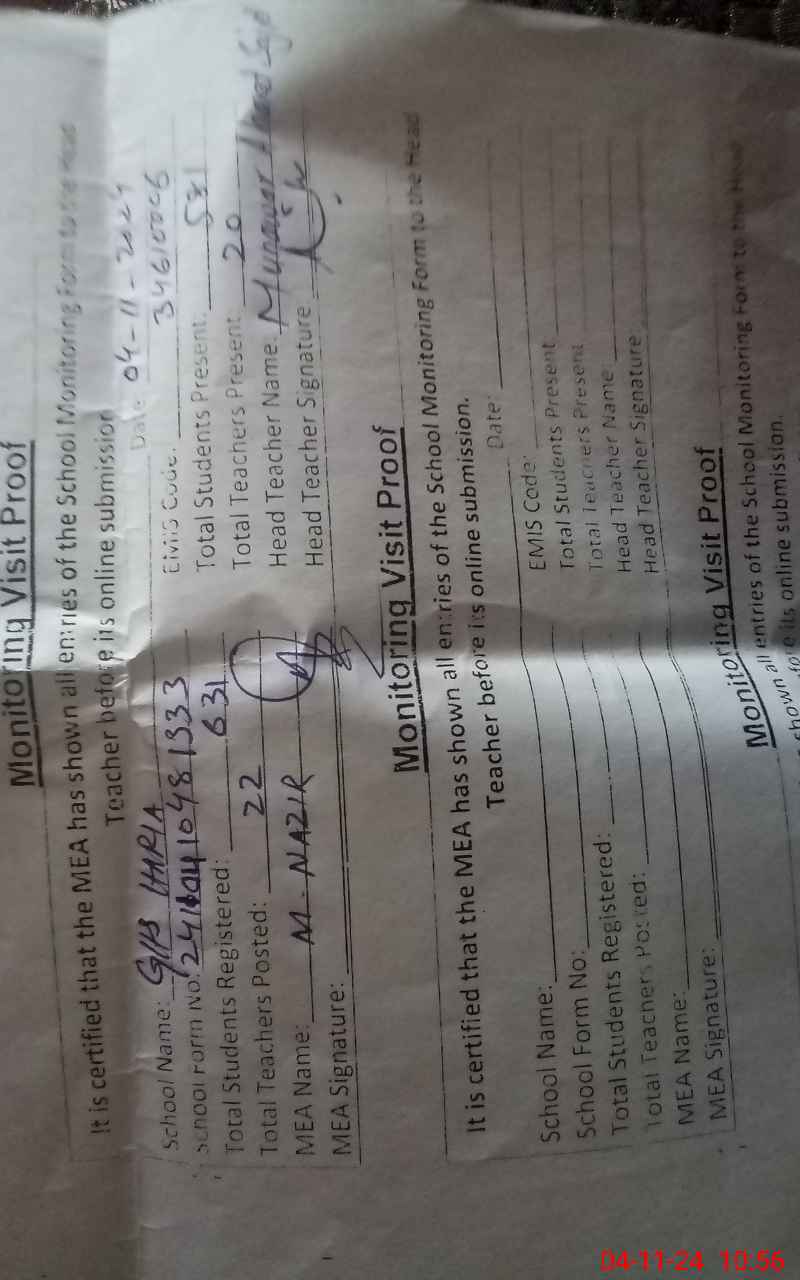 Monitoring Visit Proof
It is certified that the MEA has shown all entries of the School Monitoring Form to the Head
Teacher before its online submission
Date: 04-11-2024
School Name: GHS EMIS Code: 34610006
School Form No: 1333
Total Students Registered: 631 Total Students Present:
Total Teachers Posted: 22 Total Teachers Present 20
MEA Name: M. NAZIR Head Teacher Name: Munawar Ahmad
MEA Signature: Head Teacher Signature
Monitoring Visit Proof
It is certified that the MEA has shown all entries of the School Monitoring Form to the Head
Teacher before its online submission.
Date:
School Name: EMIS Code:
School Form No: Total Students Present
Total Students Registered: Total Teachers Present
Total Teachers Posted: Head Teacher Name:
MEA Name: Head Teacher Signature:
MEA Signature:
Monitoring Visit Proof
shown all entries of the School Monitoring Form to the Head
before its online submission.
04-11-24 10:56